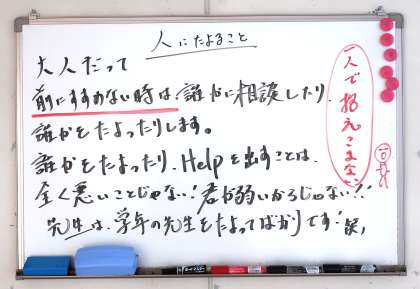 人にたよること
大人だって
前にすすめない時は、誰かに相談したり、
誰かをたよったりします。
誰かをたよったり、Helpを出すことは、
全く悪いことじゃない!君が弱いからじゃない!!
先生は、学年の先生をたよってばかりです!笑,
一人で抱えこまない